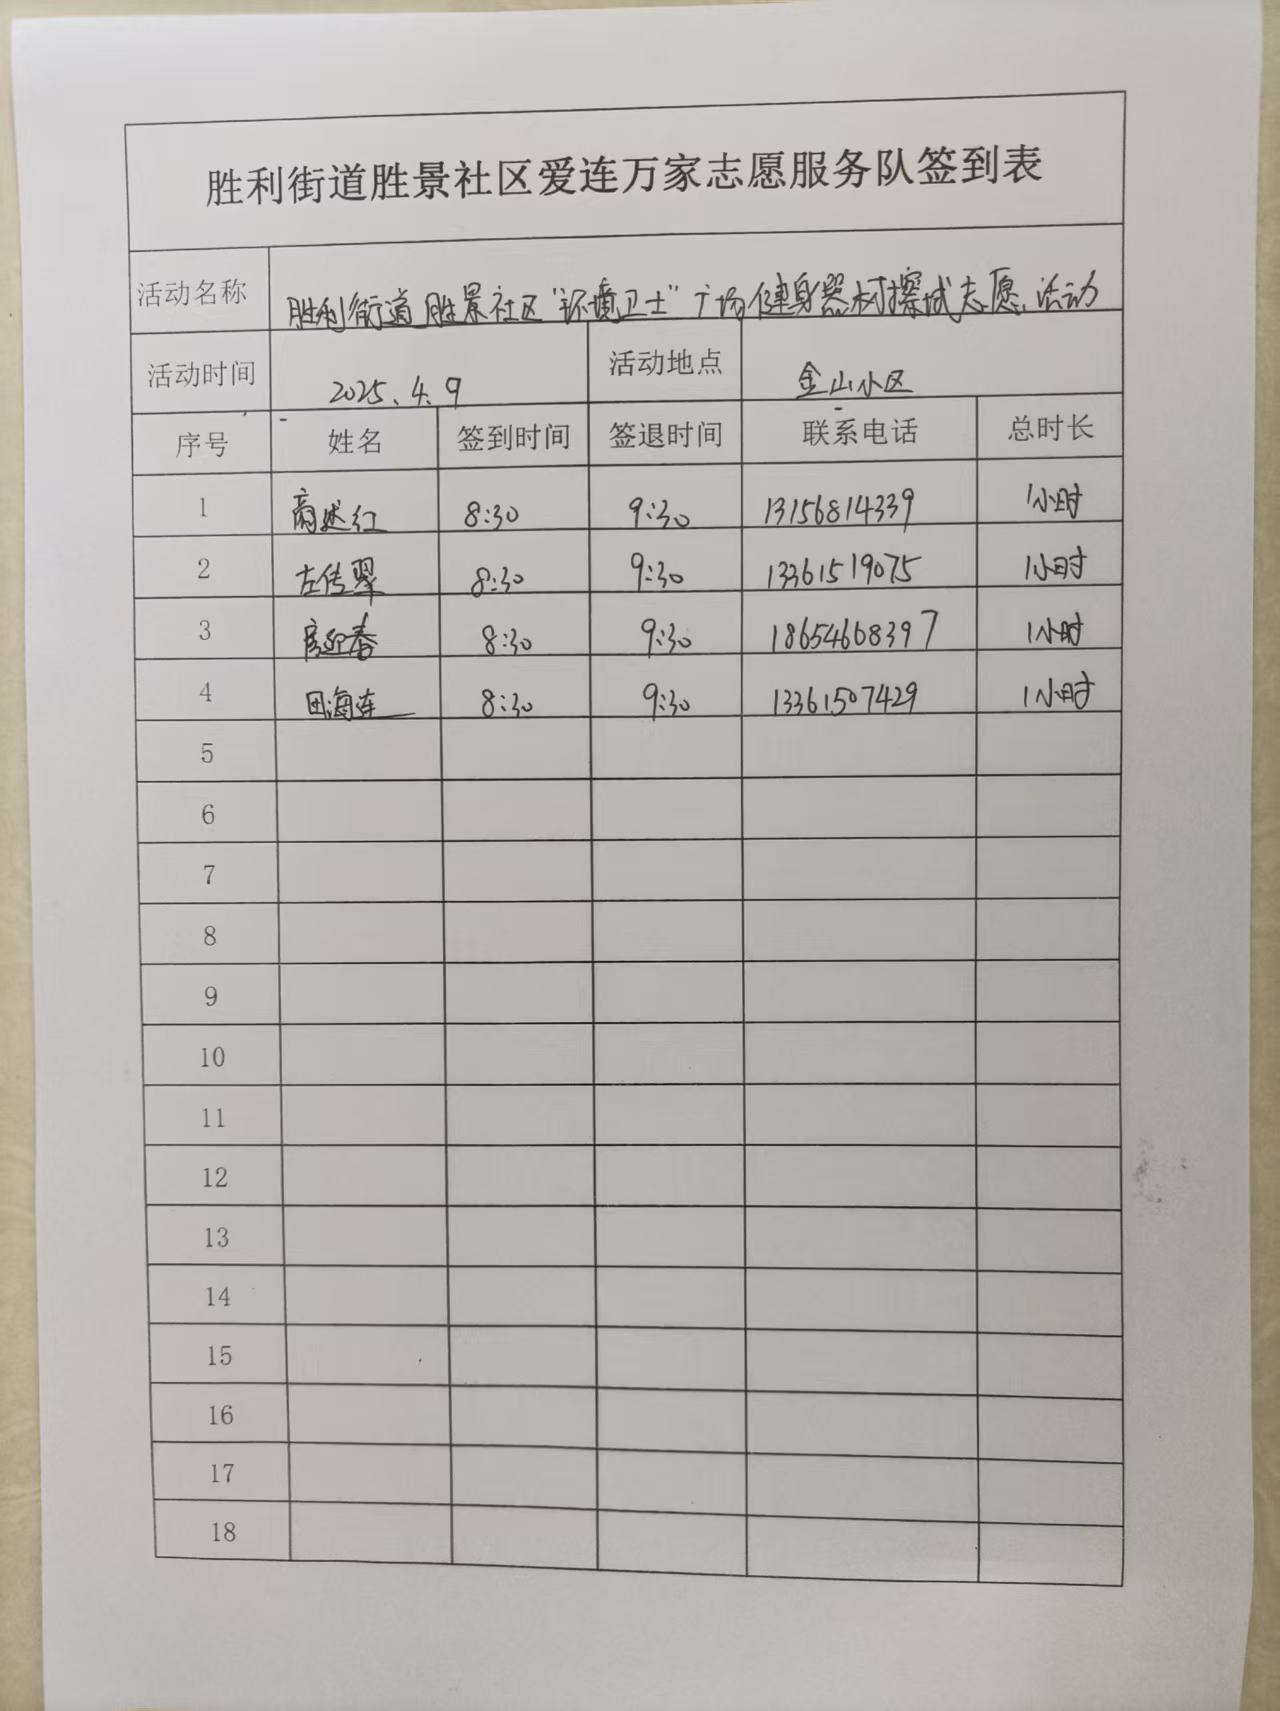 胜利街道胜景社区爱连万家志愿服务队签到表
活动名称 胜利街道胜景社区"环境卫士"广场健身器材擦拭志愿活动
活动时间 2025.4.9 活动地点 金山小区
序号 姓名 签到时间 签退时间 联系电话 总时长
1 商述红 8:30 9:30 13156814339 1小时
2 左传翠 8:30 9:30 13361519075 1小时
3 房迎春 8:30 9:30 18654668397 1小时
4 田海连 8:30 9:30 13361507429 1小时
5
6
7
8
9
10
11
12
13
14
15
16
17
18